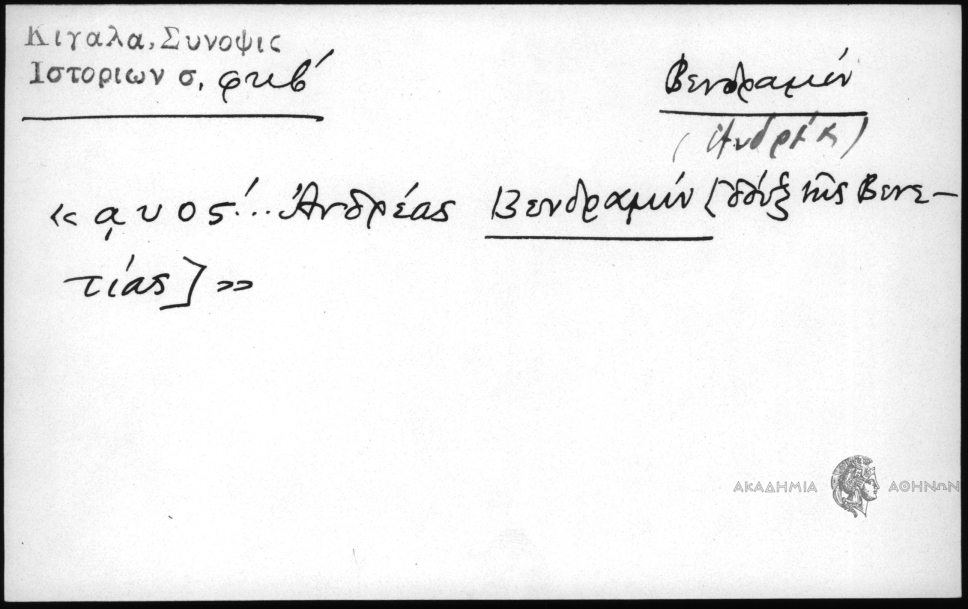 Κιγαλα, Συνοψις
Ιστοριων σ. φκβ΄
Βενδραμὶν
(Ἀνδρέας)
«͵αυος΄... Ἀνδρέας Βενδραμὶν [δόυξ τῆς Βενε-
τίας]»
ΑΚΑΔΗΜΙΑ ΑΘΗΝΩΝ